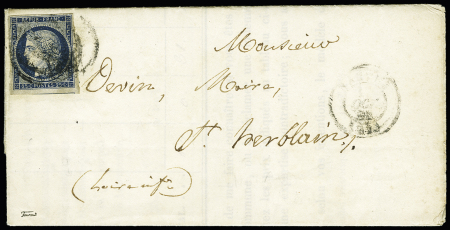 REPUB. FRANC.
25 POSTES 25
Monsieur
Devin, Maire,
St. herblain.
(Loire infre)